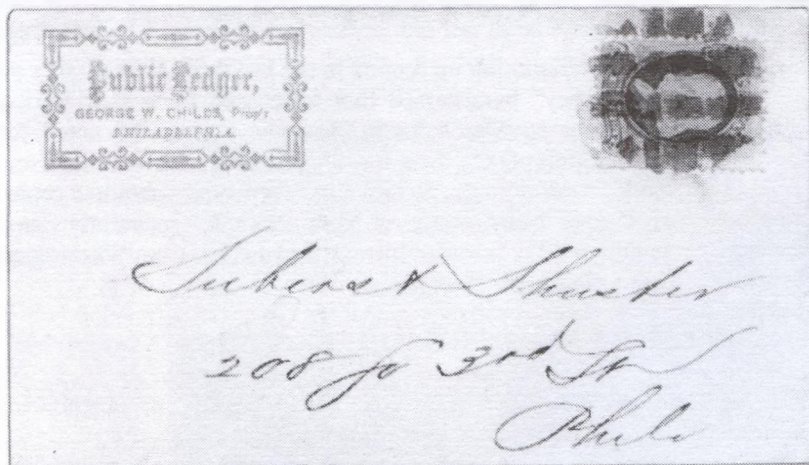 Public Ledger,
GEORGE W. CHILDS, Prop'r
PHILADELPHIA.
Shuster
208 So 3rd St
Phila